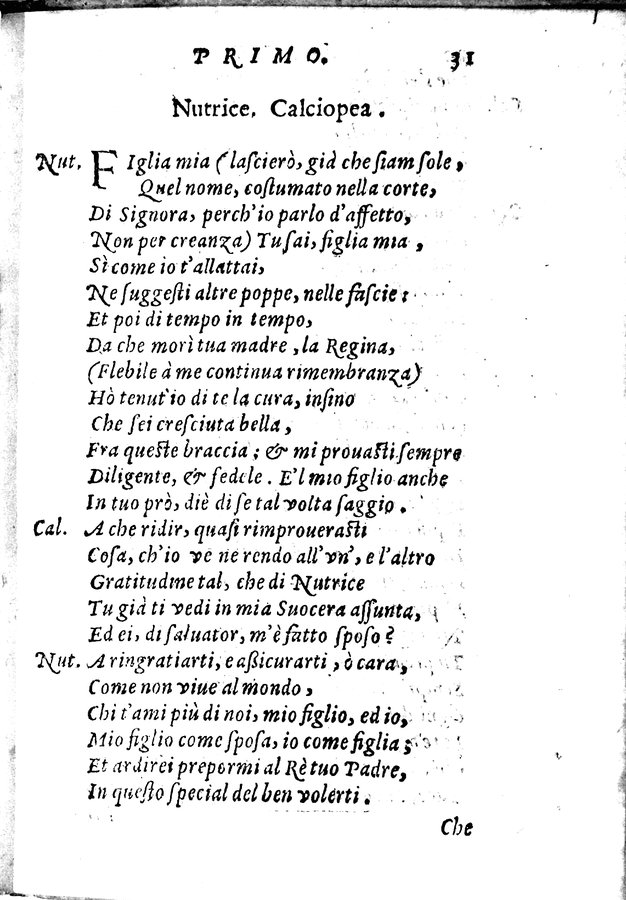 PRIMO. 31
Nutrice. Calciopea.
Nut. Figlia mia (laſcierò, già che ſiam ſole,
Quel nome, coſtumato nella corte,
Di Signora, perch'io parlo d'affetto,
Non per creanza) Tu ſai, figlia mia,
Sì come io t'allattai,
Ne ſuggeſti altre poppe, nelle faſcie:
Et poi di tempo in tempo,
Da che morì tua madre, la Regina,
(Flebile à me continua rimembranza)
Hò tenut'io di te la cura, inſino
Che ſei creſciuta bella,
Fra queſte braccia; & mi prouaſti ſempre
Diligente, & fedele. E'l mio figlio anche
In tuo prò, diè di ſe tal volta ſaggio.
Cal. A che ridir, quaſi rimprouerasti
Coſa, ch'io ve ne rendo all'vn', e l'altro
Gratitudine tal, che di Nutrice
Tu già ti vedi in mia Suocera aſſunta,
Ed ei, di ſaluator, m'è fatto ſpoſo?
Nut. A ringratiarti, e aßicurarti, ò cara,
Come non viue al mondo,
Chi t'ami più di noi, mio figlio, ed io,
Mio figlio come ſpoſa, io come figlia;
Et ardirei prepormi al Rè tuo Padre,
In queſto ſpecial del ben volerti.
Che